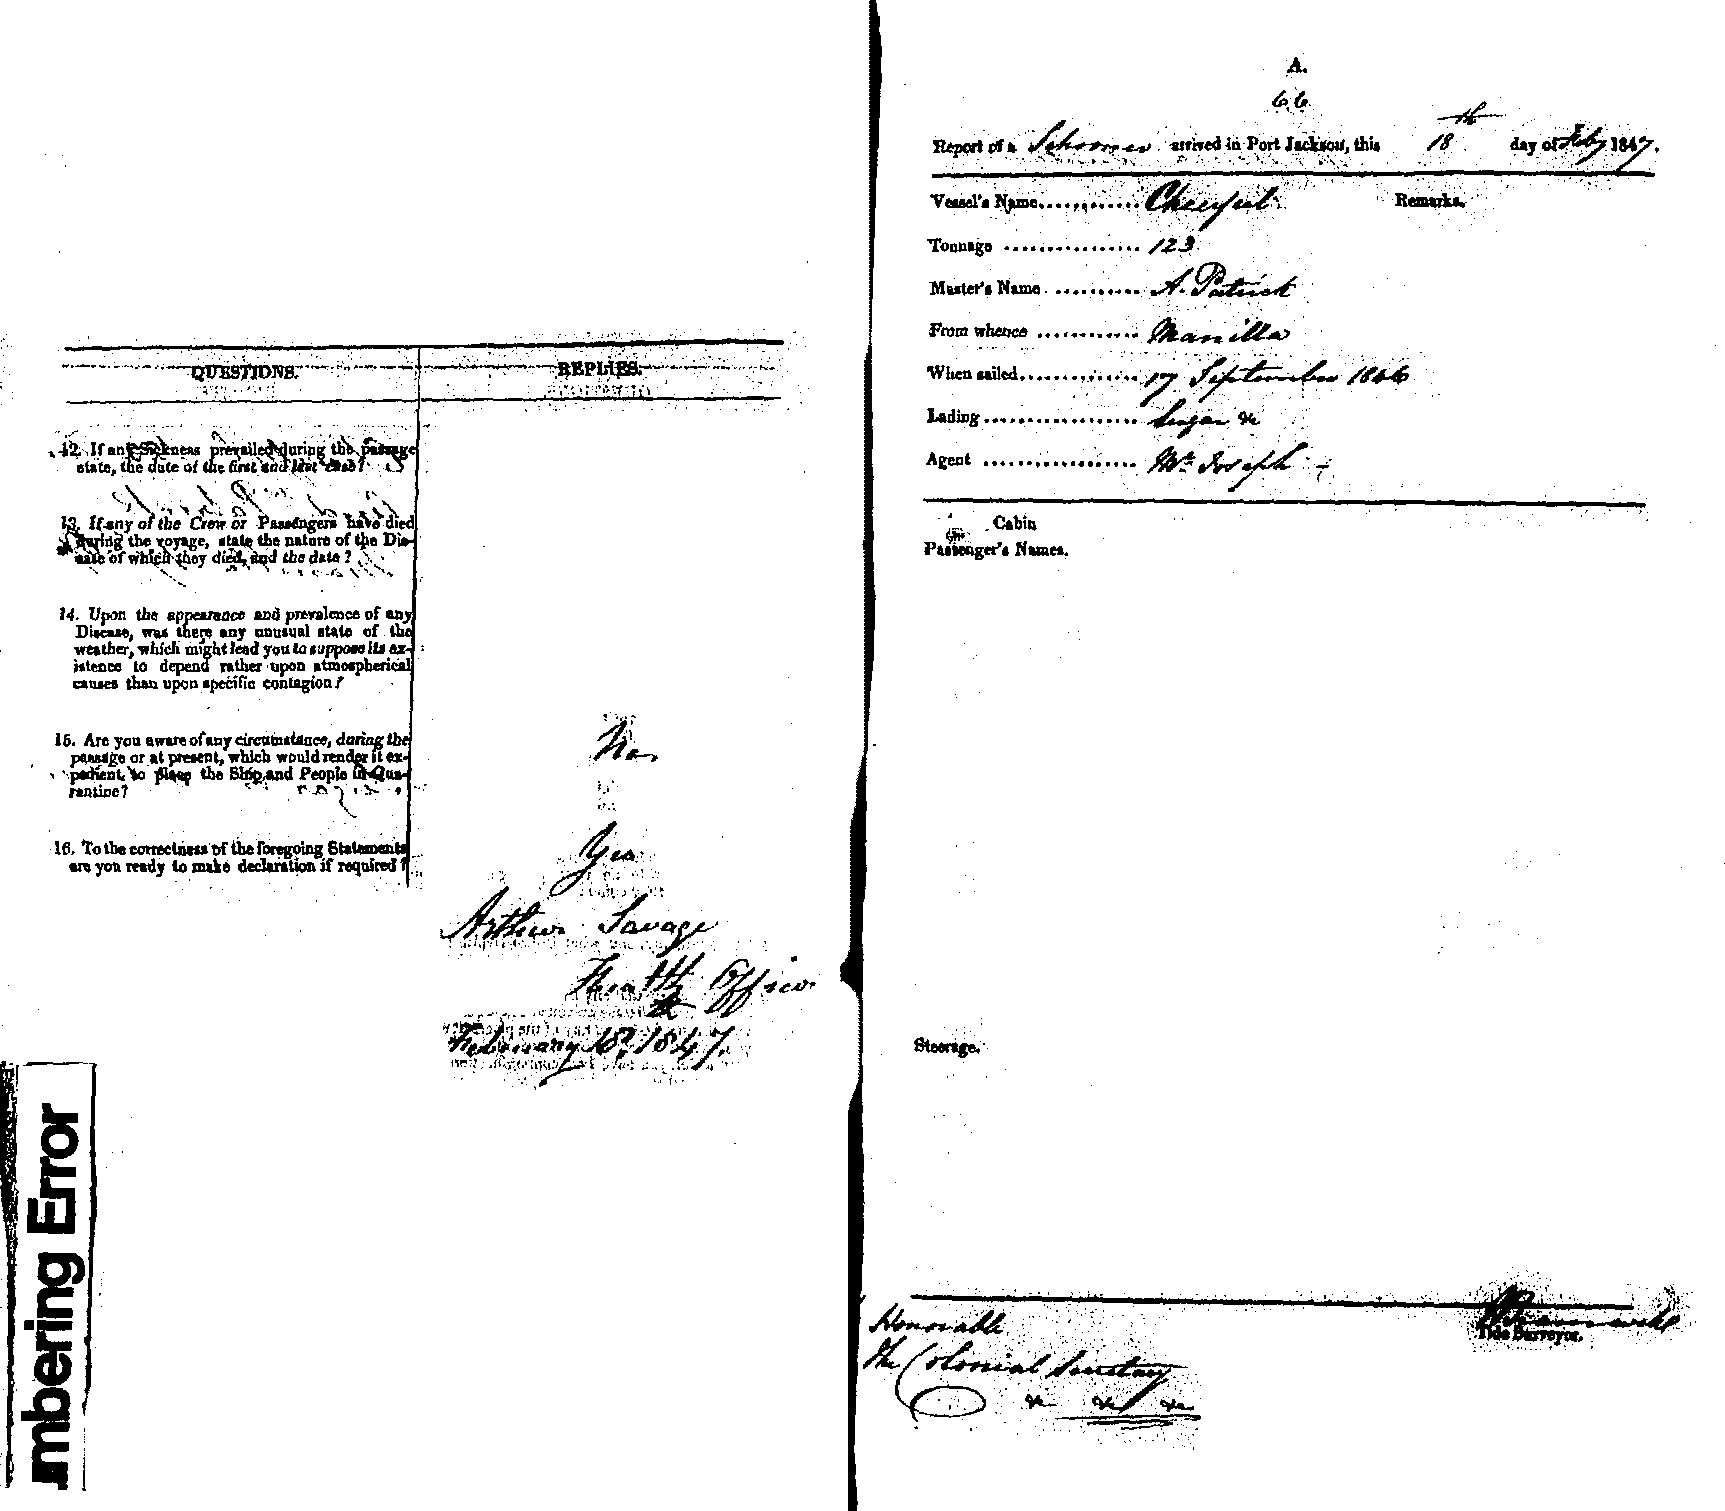 QUESTIONS.
REPLIES.
12. If any Sickness prevailed during the passage
state, the date of the first and last case?
13. If any of the Crew or Passengers have died
during the voyage, state the nature of the Dis-
ease of which they died, and the date?
14. Upon the appearance and prevalence of any
Disease, was there any unusual state of the
weather, which might lead you to suppose its ex-
istence to depend rather upon atmospherical
causes than upon specific contagion?
15. Are you aware of any circumstance, during the
passage or at present, which would render it ex-
pedient to place the Ship and People in Qua-
rantine?
No
16. To the correctness of the foregoing Statements
are you ready to make declaration if required?
Yes
Arthur Savage
Health Officer
February 18, 1847.
mbering Error
A.
66
Report of a Schooner arrived in Port Jackson, this 18th day of Feby 1847.
Vessel's Name............ Cheerful
Remarks.
Tonnage ................ 123
Master's Name .......... A. Patrick
From whence ............ Manilla
When sailed.............. 17 September 1846
Lading.................. Sugar &c
Agent .................. Mr. Joseph
Cabin
Passenger's Names.
Steerage.
Tide Surveyor.
Honorable
The Colonial Secretary
&c &c &c